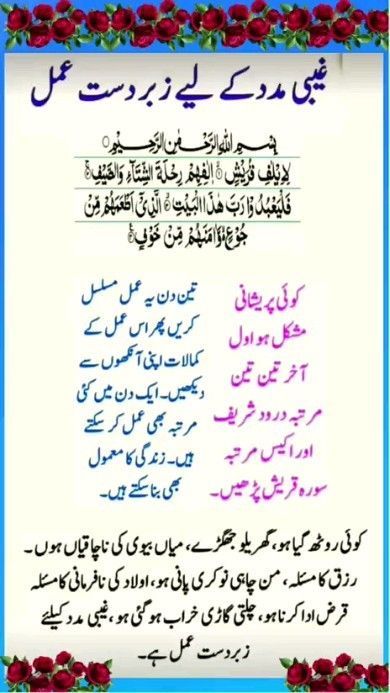 غیبی مدد کے لیے زبردست عمل
بِسْمِ اللهِ الرَّحْمٰنِ الرَّحِيْمِ
لِاِیْلٰفِ قُرَیْشٍ اٖلٰفِهِمْ رِحْلَةَ الشِّتَآءِ وَالصَّیْفِ
فَلْیَعْبُدُوْا رَبَّ هٰذَا الْبَیْتِ الَّذِیْۤ اَطْعَمَهُمْ مِّنْ
جُوْعٍ وَّاٰمَنَهُمْ مِّنْ خَوْفٍ
کوئی پریشانی
مشکل ہو اول
آخر تین تین
مرتبہ درود شریف
اور اکیس مرتبہ
سورہ قریش پڑھیں۔
تین دن یہ عمل مسلسل
کریں پھر اس عمل کے
کمالات اپنی آنکھوں سے
دیکھیں۔ ایک دن میں کئی
مرتبہ بھی عمل کر سکتے
ہیں۔ زندگی کا معمول
بھی بنا سکتے ہیں۔
کوئی روٹھ گیا ہو، گھریلو جھگڑے، میاں بیوی کی ناچاقیاں ہوں۔
رزق کا مسئلہ، من چاہی نوکری پانی ہو، اولاد کی نافرمانی کا مسئلہ
قرض ادا کرنا ہو، چلتی گاڑی خراب ہو گئی ہو، غیبی مدد کیلئے
زبردست عمل ہے۔